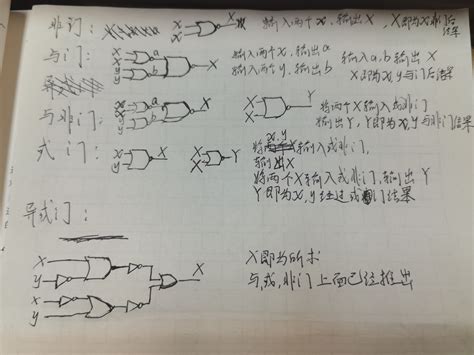 非门: x x X 输入两个x,输出X, X即为x非门后结果
与门: x x a y y b X 输入两个x,输出a 输入两个y,输出b 输入a,b输出X X即为x,y与门后结果
与非门: x x a y y b X X Y 将两个X输入或非门 输出Y,Y即为x,y与非门结果
或门: x y X X X Y 将x,y输入或非门,输出X
将两个X输入或非门,输出Y
Y即为x,y经过或门结果
异或门:
x y x y X
X即为所求
与,或,非门上面已经推出